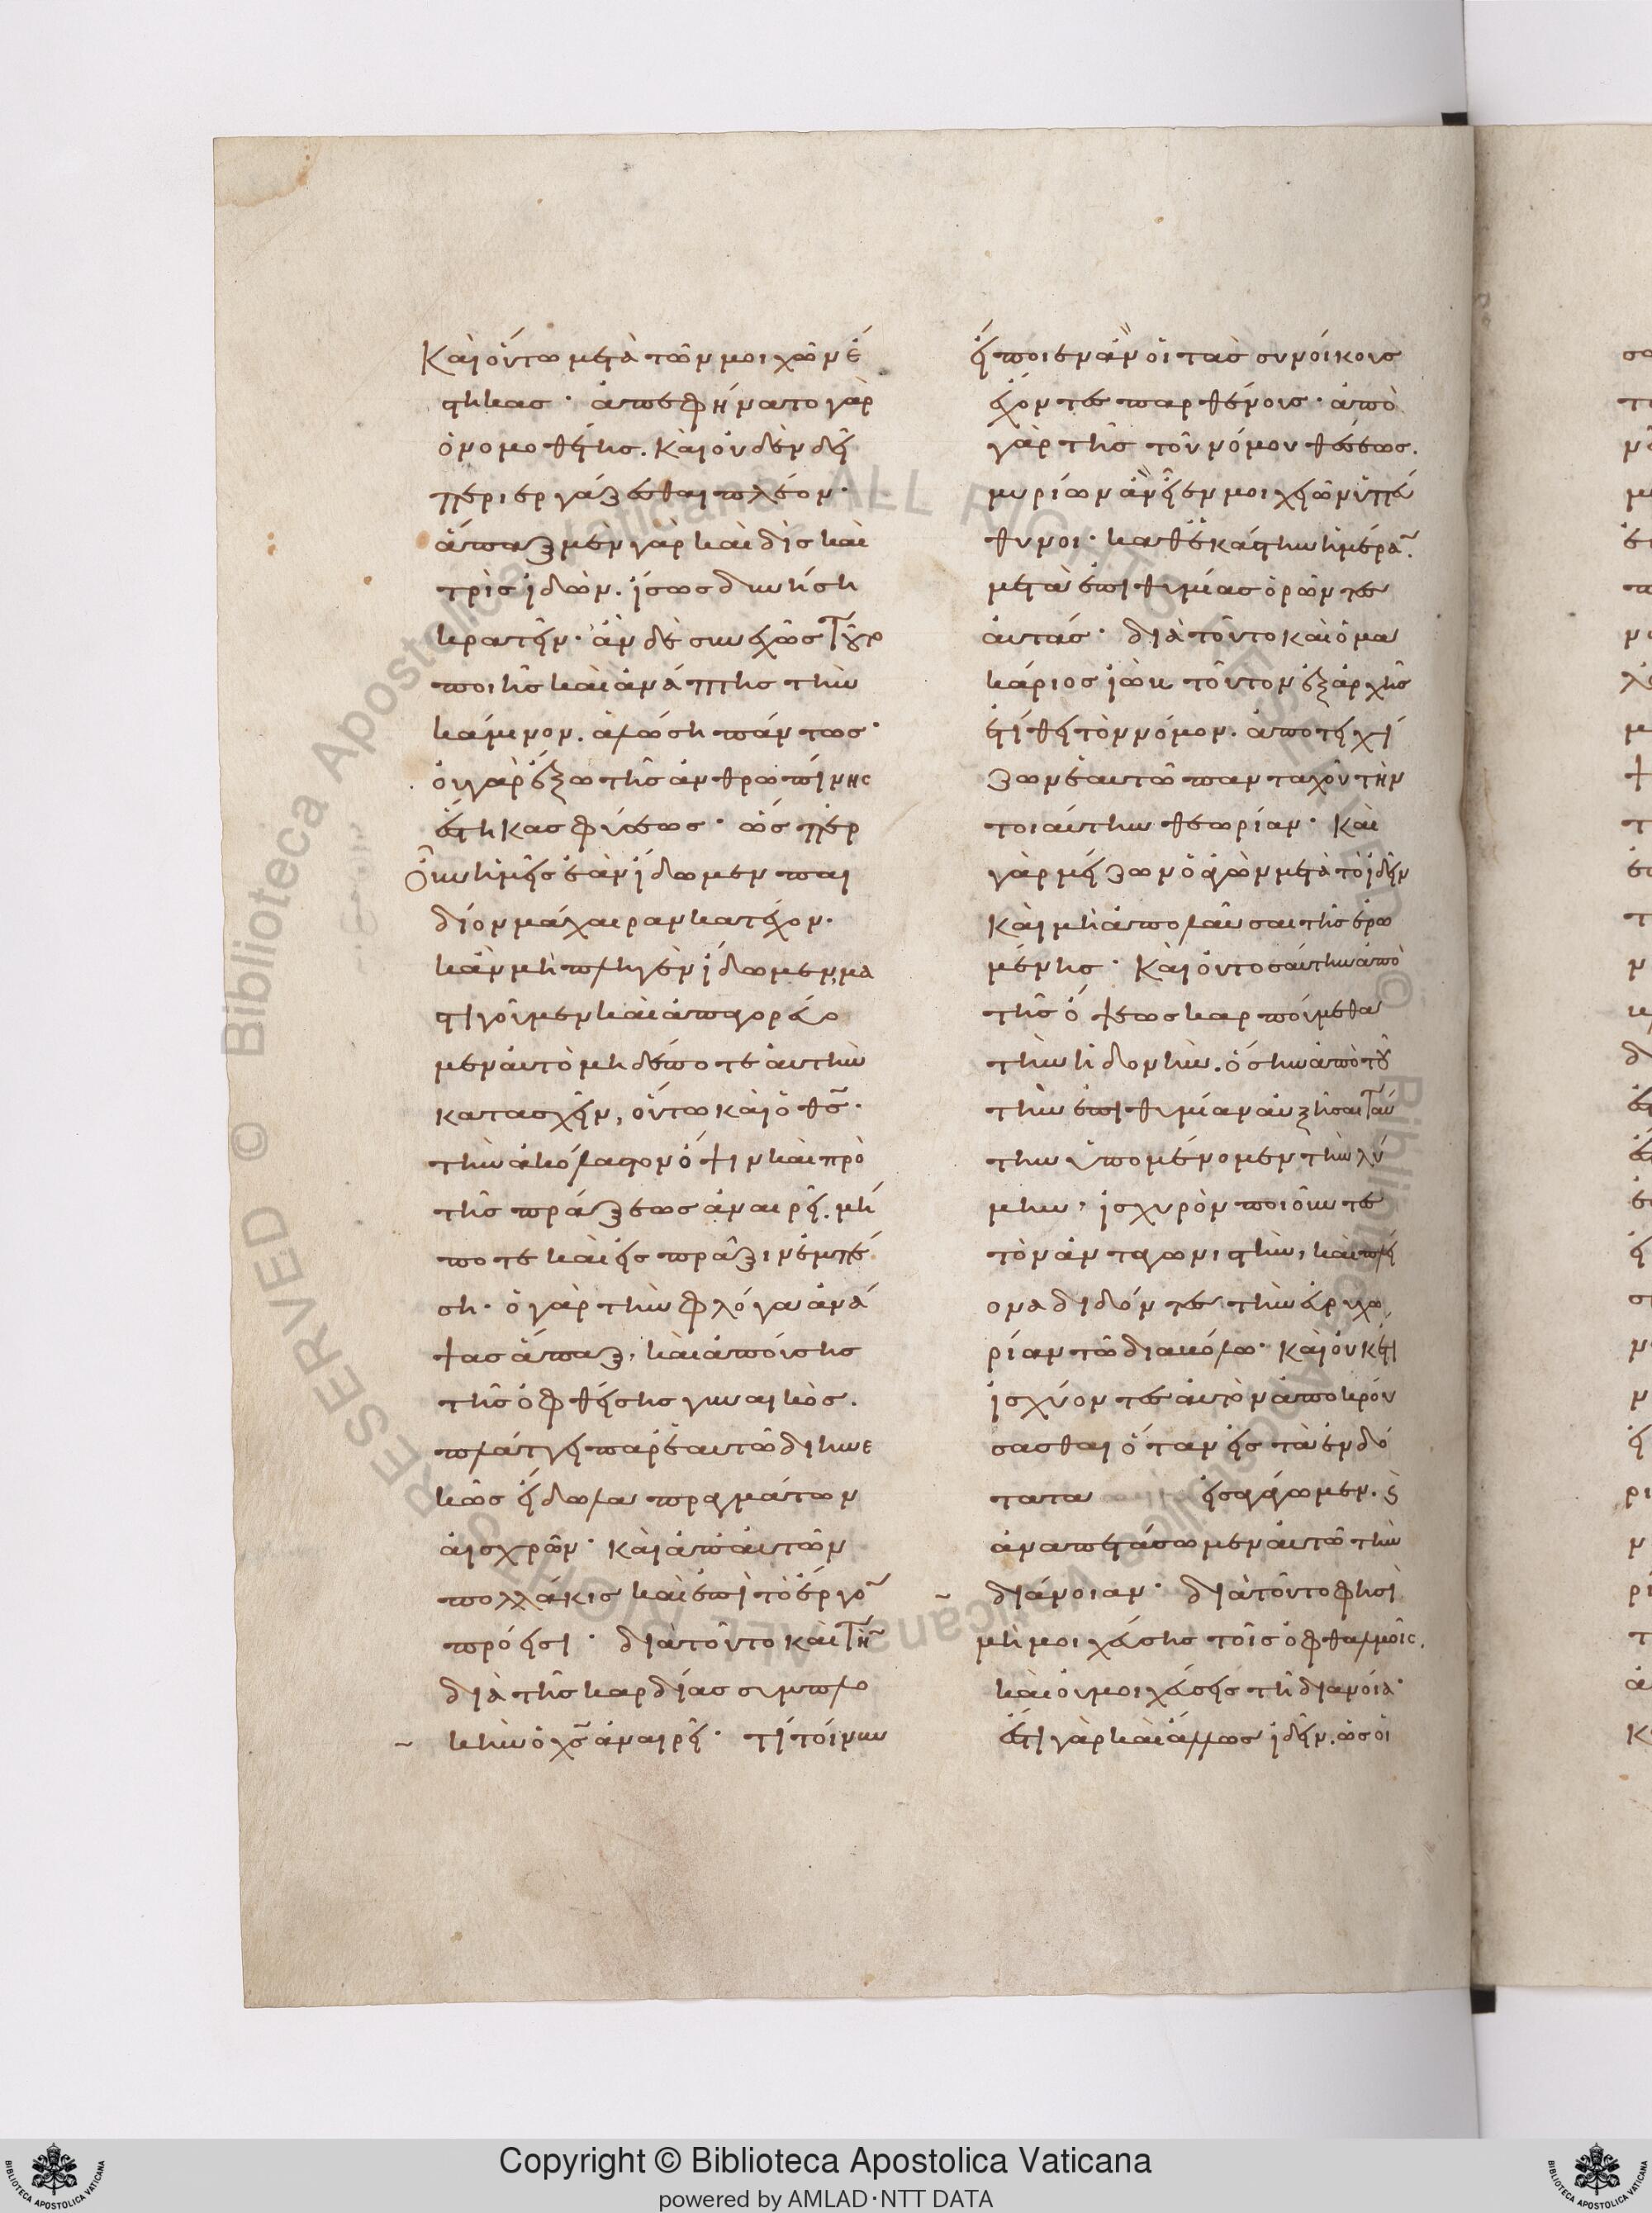 Καὶ οὕτω μετὰ τῶν μοιχῶν ἕ
στηκας· ἀπεφήνατο γὰρ
ὁ νομοθέτης. Καὶ οὐδὲν δεῖ
περιεργάζεσθαι πλέον·
ἅπαξ μὲν γὰρ καὶ δὶς καὶ
τρὶς ἰδὼν. ἴσως δυνήση
κρατεῖν· ἂν δὲ συνεχῶς τοῦτο
ποιῆς καὶ ἀνάπτης τὴν
κάμινον. ἁλώση πάντως·
οὐ γὰρ ἔξω τῆς ἀνθρωπίνης
ἕστηκας φύσεως· ὥσπερ
οὖν ἡμεῖς ἐὰν ἴδωμεν παι
δίον μάχαιραν κατέχον.
κἂν μὴ πληγὲν ἴδωμεν, μα
στιγοῦμεν καὶ ἀπαγορεύο
μεν αὐτὸ μηδέποτε αὐτὴν
κατασχεῖν, οὕτω καὶ ὁ θς·
τὴν ἀκόλαστον ὄψιν καὶ πρὸ
τῆς πράξεως ἀναιρεῖ. μή
ποτε καὶ εἰς πρᾶξιν ἐμπέ
ση· ὁ γὰρ τὴν φλόγα ἀνά
ψας ἅπαξ, καὶ ἀπούσης
τῆς ὀφθείσης γυναικὸς.
πλάττει παρ' ἑαυτῶ διηνε
κῶς εἴδωλα πραγμάτων
αἰσχρῶν· καὶ ἀπ' αὐτῶν
πολλάκις καὶ ἐπὶ τὸ ἔργον
πρόεισι· διὰ τοῦτο καὶ τὴν
διὰ τῆς καρδίας συμπλο
κὴν ὁ χς ἀναιρεῖ· τί τοίνυν
εἴποιεν ἂν οἱ τὰς συνοίκους
ἔχοντες παρθένους· ἀπὸ
γὰρ τῆς τοῦ νόμου θέσεως.
μυρίων ἂν εἶεν μοιχειῶν ὑπεύ
θυνοι· καθ' ἑκάστην ἡμέραν.
μετὰ ἐπιθυμίας ὁρῶντες
αὐτάς· διὰ τοῦτο καὶ ὁ μα
κάριος ἰὼβ τοῦτον ἐξ ἀρχῆς
ἐτίθει τὸν νόμον. ἀποτειχί
ζων ἑαυτῶ πανταχοῦ τὴν
τοιαύτην θεωρίαν· Καὶ
γὰρ μείζων ὁ ἀγὼν μετὰ τὸ ἰδεῖν
Καὶ μὴ ἀπολαῦσαι τῆς ἐρω
μένης· Καὶ οὐ τοσαύτην ἀπὸ
τῆς ὄψεως καρπούμεθα
τὴν ἡδονὴν. ὅσην ἀπὸ τοῦ
τὴν ἐπιθυμίαν αὐξῆσαι ταύ
την ὑπομένομεν τὴν λύ
μην, ἰσχυρὸν ποιοῦντες
τὸν ἀνταγωνιστὴν, καὶ πλεί
ονα διδόντες τὴν εὐρυχω
ρίαν τῶ διαβόλω· καὶ οὐκέτι
ἰσχύοντες αὐτὸν ἀποκρού
σασθαι ὅταν εἰς τὰ ἐνδό
τατα εἰσαγάγωμεν. καὶ
ἀναπετάσωμεν αὐτῶ τὴν
διάνοιαν· διὰ τοῦτο φησὶ
μὴ μοιχεύσης τοῖς ὀφθαλμοῖς,
καὶ οὐ μοιχεύσεις τῆ διανοία·
ἔστι γὰρ καὶ ἄλλως ἰδεῖν. ὡς οἱ